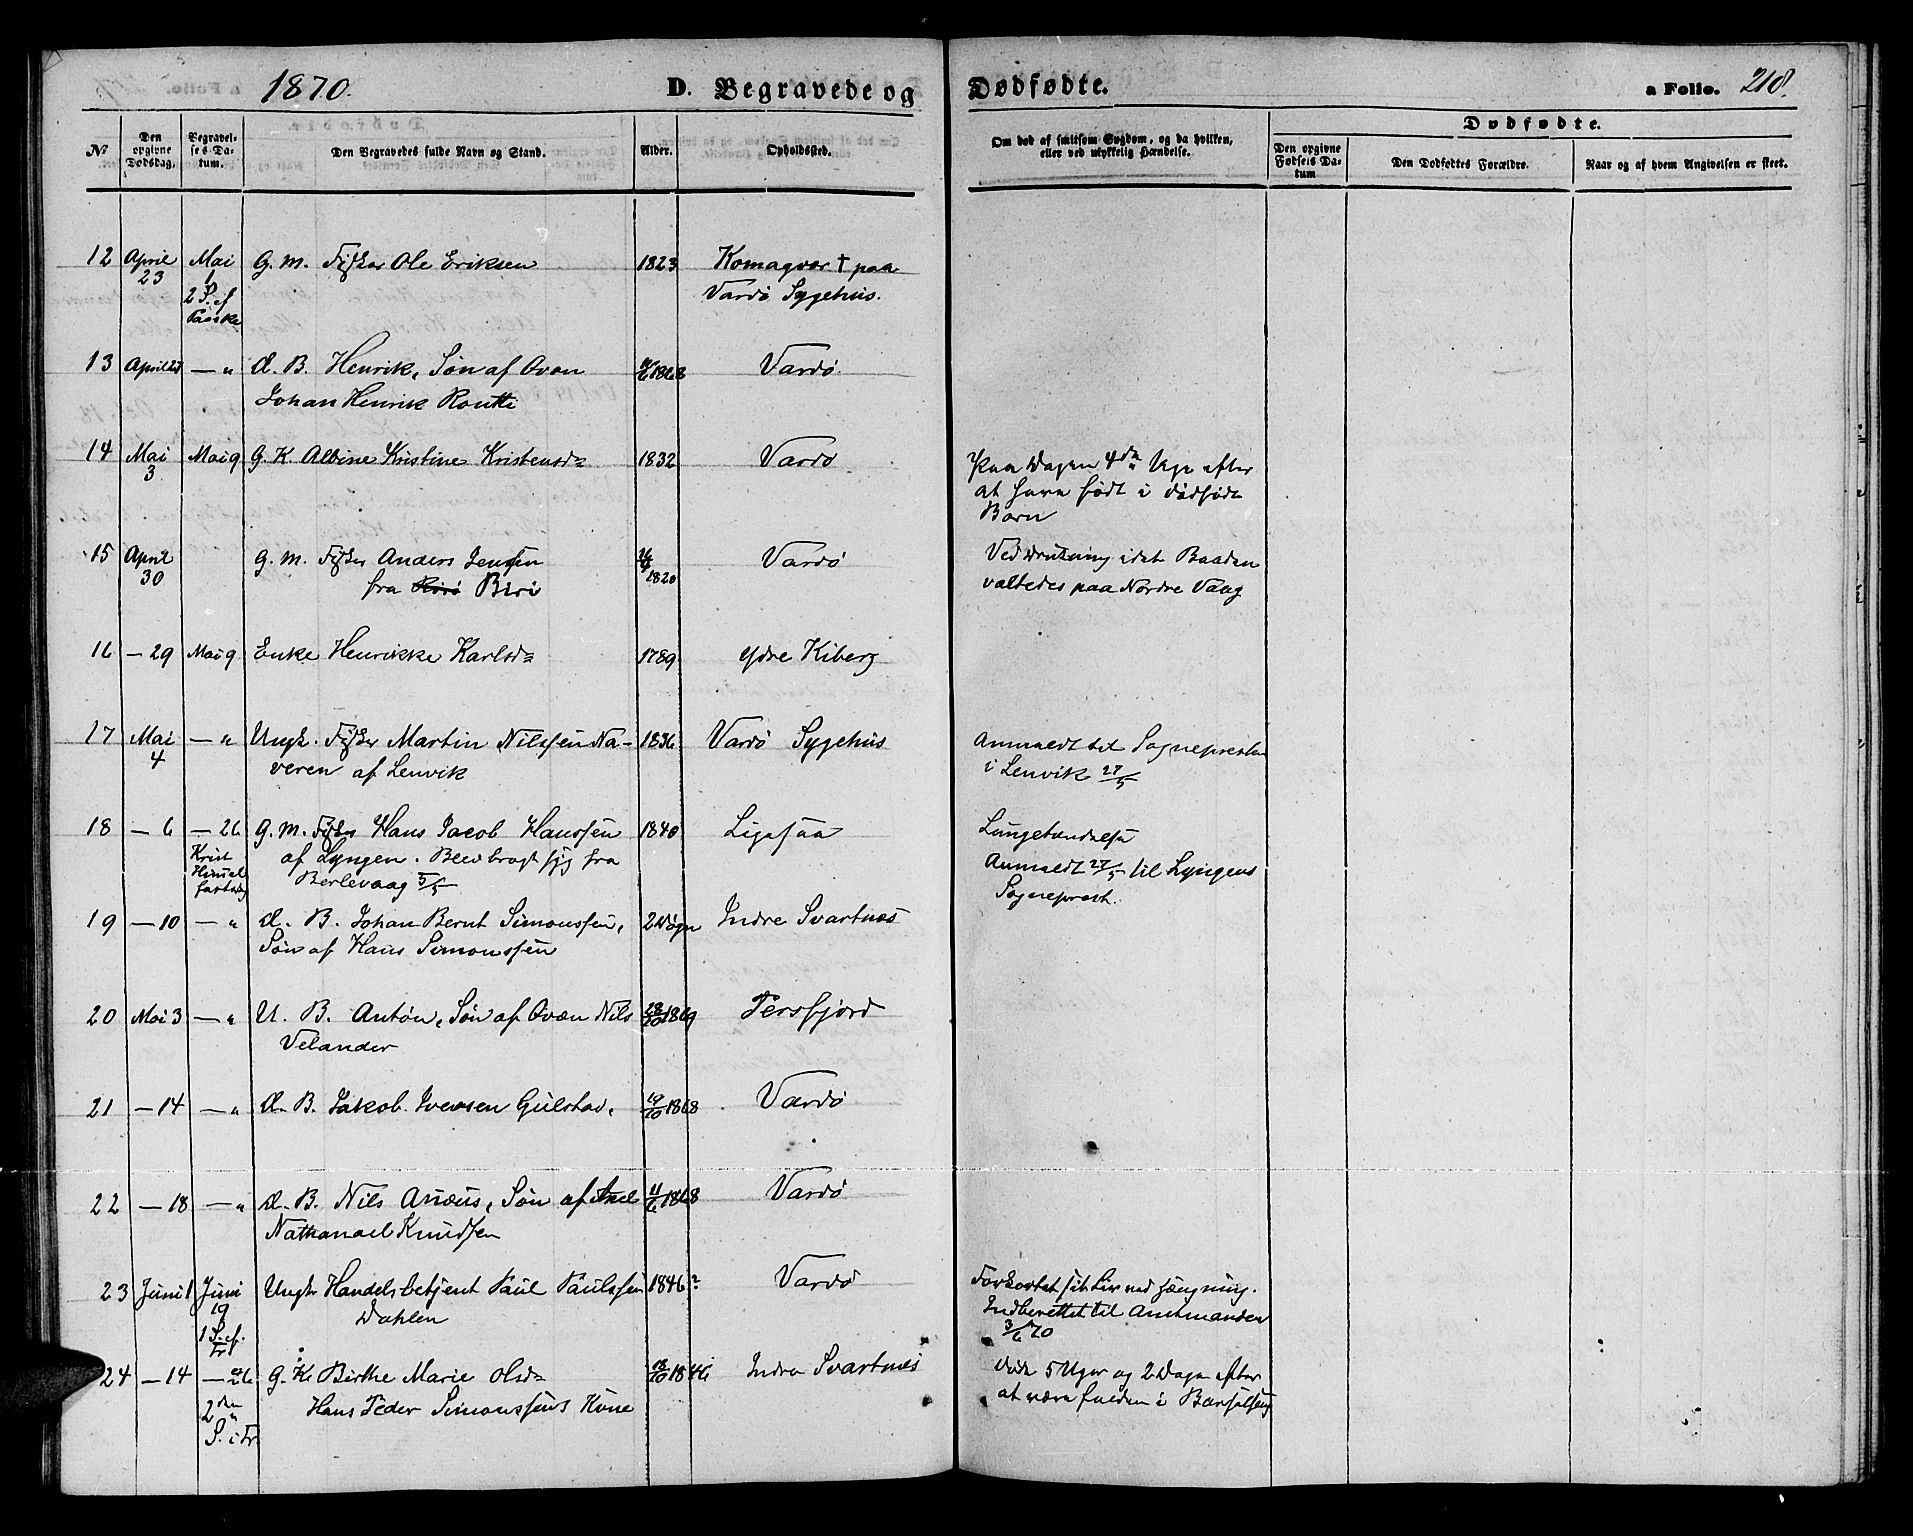 1870. D. Begravede og Dødfødte. a Folio. 218.
No. Den opgivne Dødsdag. Begravelses Datum. Den Begravedes fulde Navn og Stand. Alder. Opholdssted. Om død af smitsom Sygdom, og da hvilken, eller ved ulykkelig Hændelse. Dødfødte.
Den opgivne Fødsels Datum Den Dødfødtes Forældre. Naar og af hvem Angivelsen er skeet.
12 April 23 Mai 1 2 S. ef Paaske G. M. Fisker Ole Eriksen 1823 Komagvær † paa
Vardø Sygehus.
13 April — " d. B. Henrik, Søn af Qvæn 1868 Vardø.
Johan Henrik Routti
14 Mai 3 Mai 9 G. K. Albine Kristine Kristensd= 1832 Vardø Paa Dagen 4de Uge efter
at have født i dødfødt
Barn
15 April 30 G. M. Fisker Anders Jensen 1820 Vardø Ved Drukning idet Baaden
fra Biri væltedes paa Nordre Vaag
16 — 29 Mai 9 Enke Henrikke Karlsd= 1789 Ydre Kiberg
17 Mai 4 — " Ungk. Fisker Martin Nilssen Na- 1836 Vardø Sygehus Anmeldt til Sognepresten
veren af Lenvik i Lenvik 27/5
18 — 6 — 26 Krist Himmelfartsdag G. M. Fisker Hans Jacob Hanssen 1840 Ligesaa Lungebetændelse
af Lyngen. Blev bragt syg fra Anmeldt 27/5 til Lyngens
Berlevaag 5/5 Sogneprest.
19 — 10 — " d. B. Johan Bernt Simonssen, 2 Døgn Indre Svartnes
Søn af Hans Simonssen
20 Mai 3 — " U. B. Anton, Søn af Qvæn Nils 28/10 1869 Persfjord
Velander
21 — 14 — " d. B. Jakob Iversen Gulstad, 19/10 1868 Vardø
22 — 18 — " d. B. Nils Andæus, Søn af Axel 11/6 1868 Vardø
Nathanael Knudsen
23 Juni 1 Juni 19 1 S. ef. Tr. Ungk. Handelsbetjent Paul Paulssen 1846? Vardø Forkortet sit Liv ved Hængning.
Dahlen Indberettet til Amtmanden
3/6 70
24 — 14 — 26 2den S. i Tr. G. K. Birthe Marie Olsd= 18/10 1846 Indre Svartnes Døde 5 Uger og 2 Dage efter
Hans Peder Simonssens Kone at være falden i Barselseng